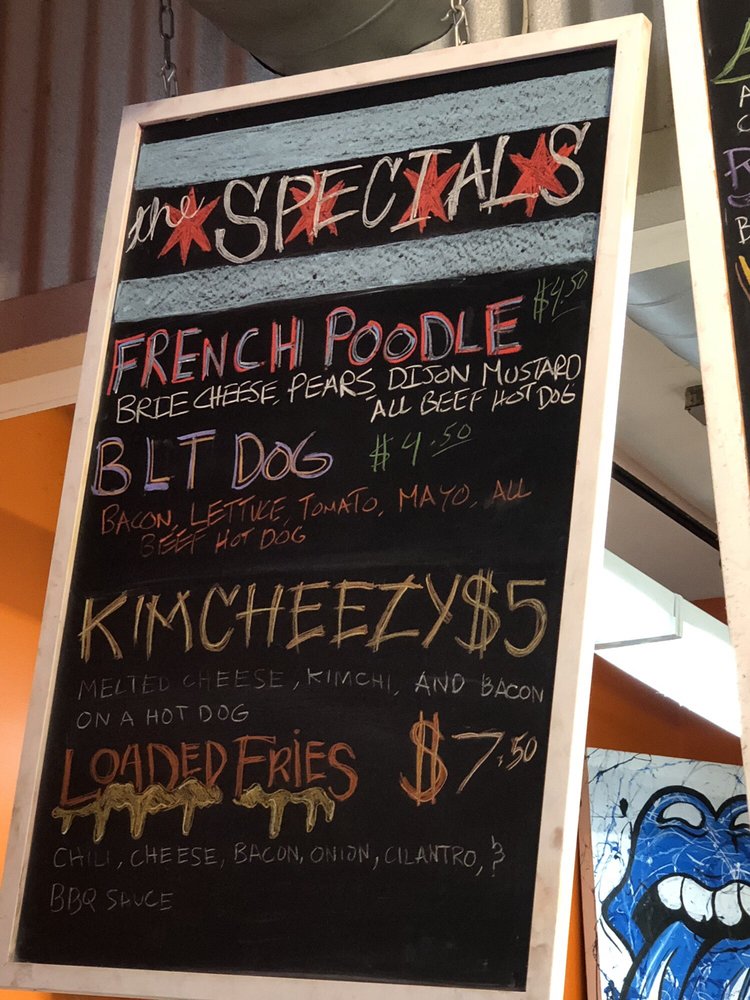 the SPECIALS
FRENCH POODLE $4.50
BRIE CHEESE, PEARS, DIJON MUSTARD
ALL BEEF HOT DOG
BLT DOG $4.50
BACON, LETTUCE, TOMATO, MAYO, ALL
BEEF HOT DOG
KIMCHEEZY $5
MELTED CHEESE, KIMCHI, AND BACON
ON A HOT DOG
LOADED FRIES $7.50
CHILI, CHEESE, BACON, ONION, CILANTRO, &
BBQ SAUCE